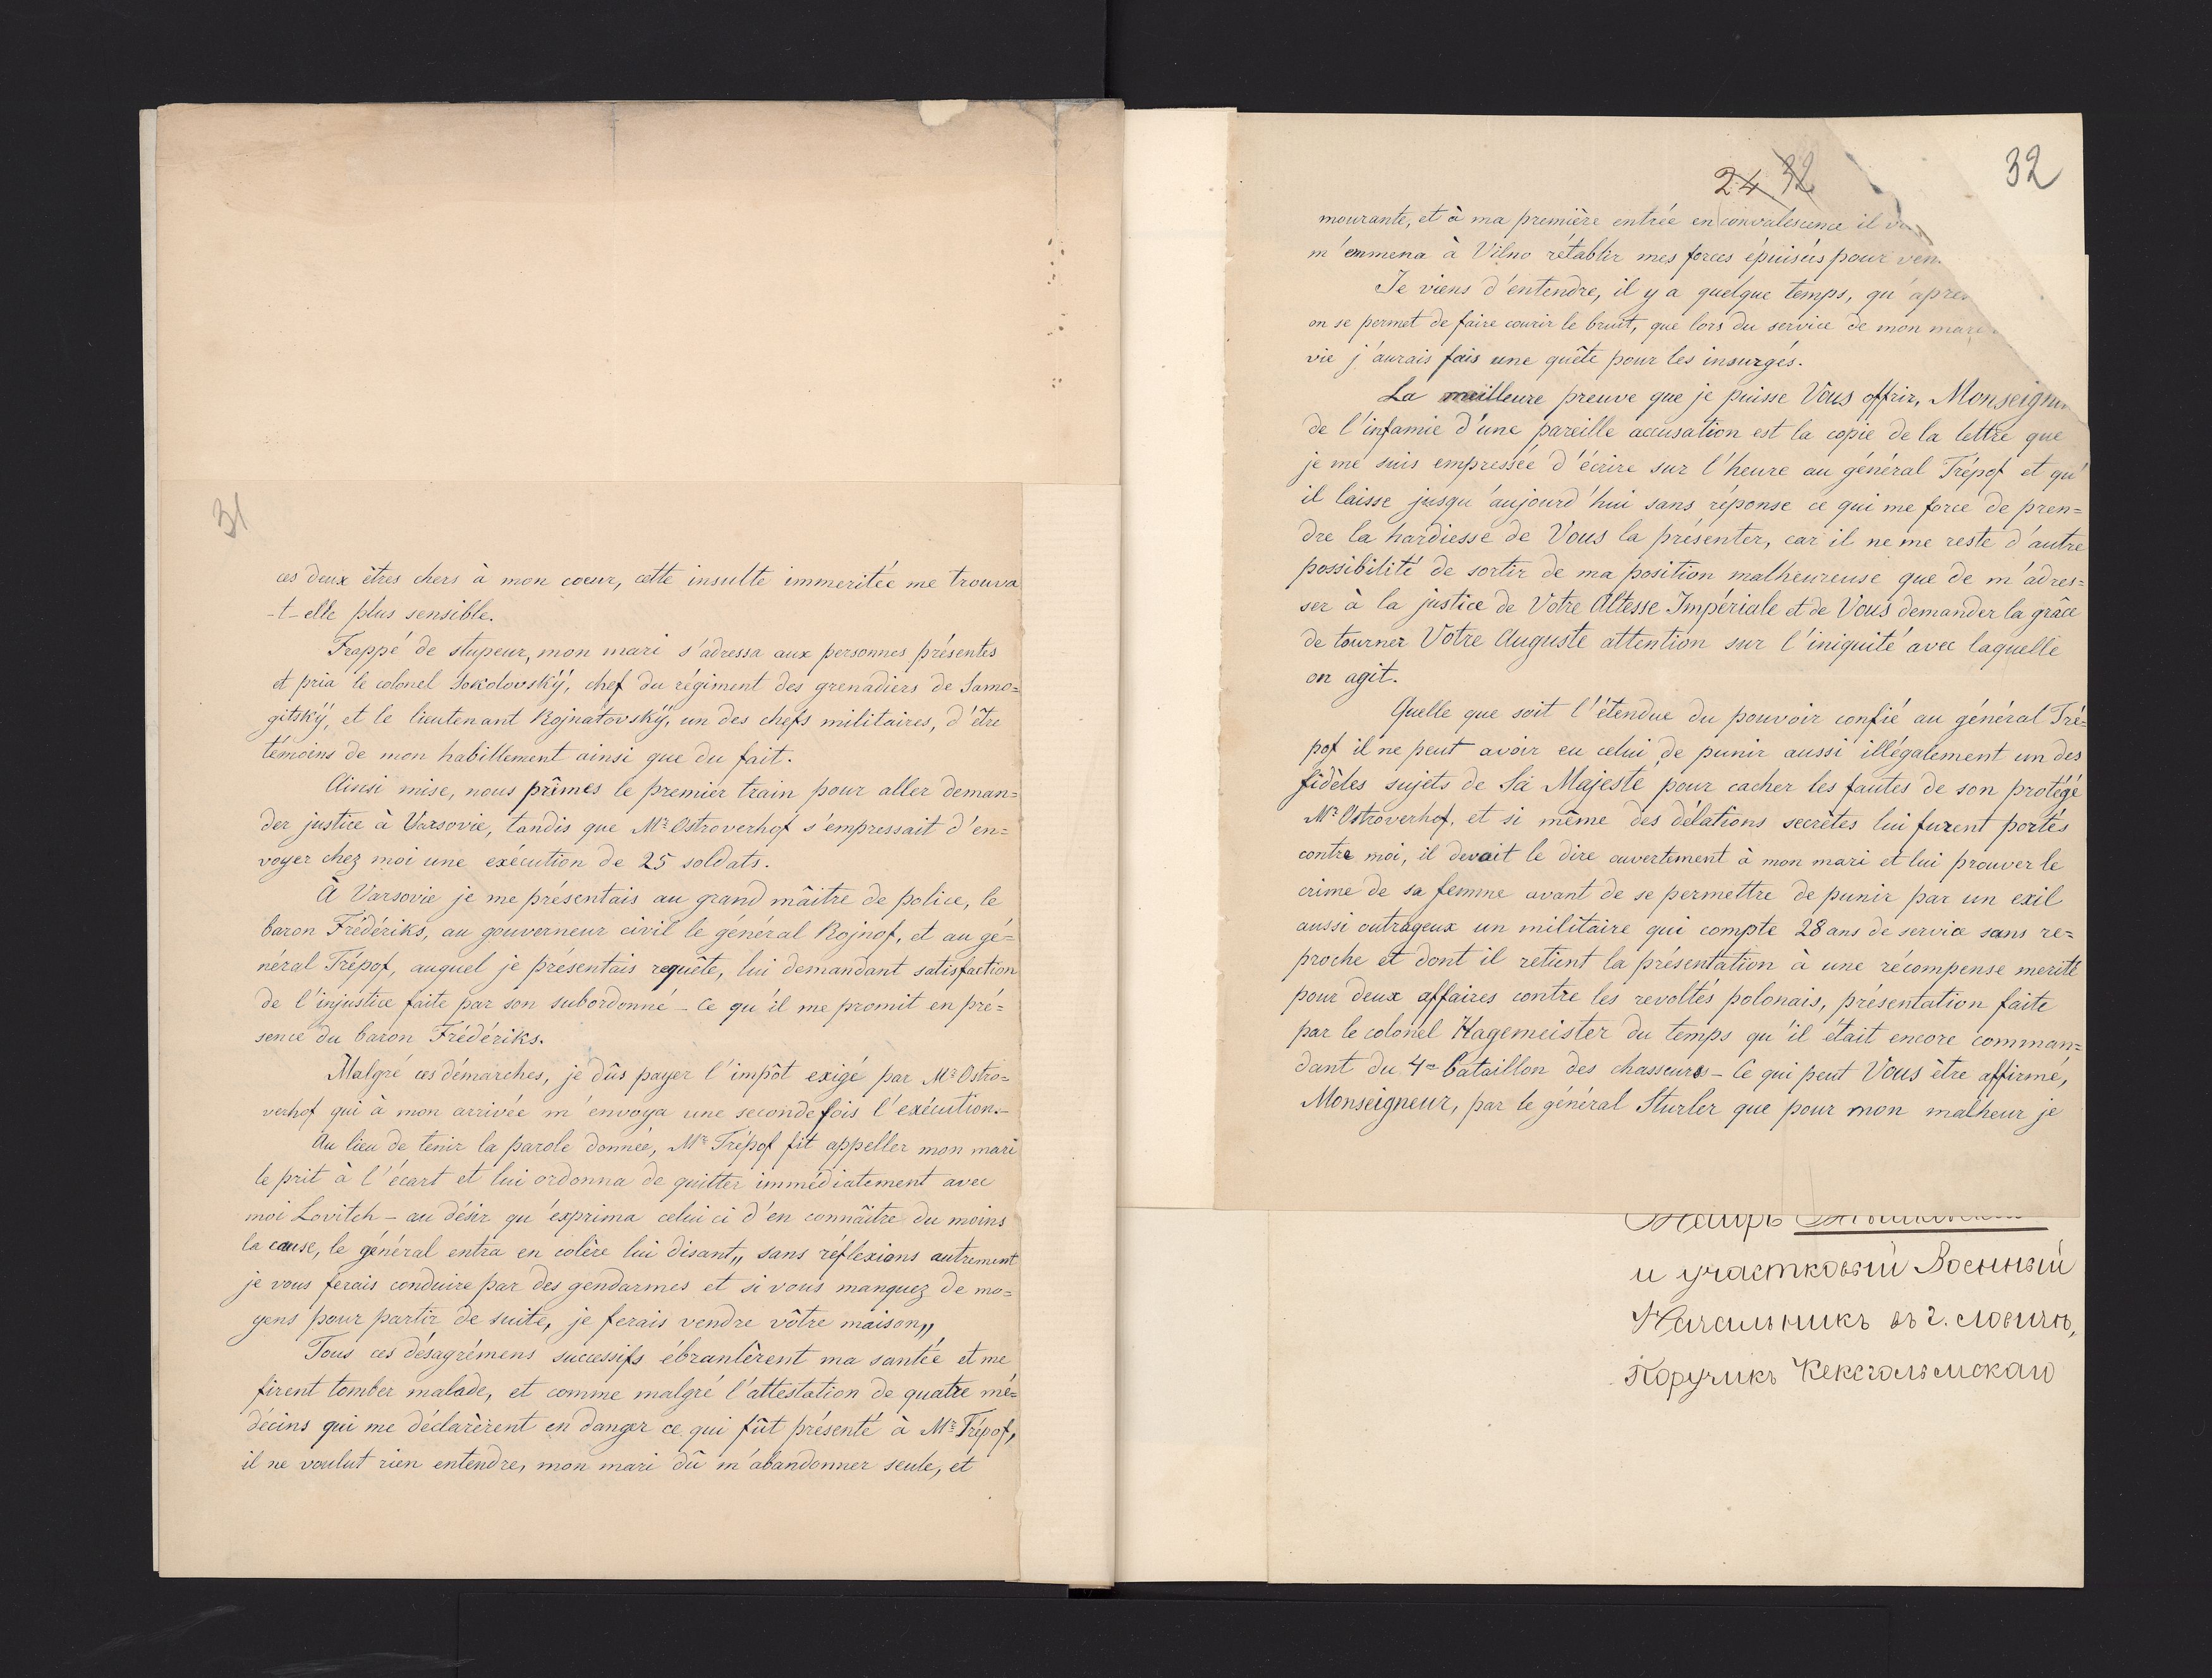 31
ces deux êtres chers à mon coeur, cette insulte immeritée me trouva
-t-elle plus sensible.
Frappé de stupeur, mon mari s'adressa aux personnes présentes
et pria le colonel Sokolovskÿ, chef du régiment des grenadiers de Samo=
gitskÿ, et le lieutenant Rojnatovskÿ, un des chefs militaires, d'être
témoins de mon habillement ainsi que du fait.
Ainsi mise, nous prîmes le premier train pour aller deman=
der justice à Varsovie, tandis que Mr Ostroverhof s'empressait d'en=
voyer chez moi une exécution de 25 soldats.
À Varsovie je me présentais au grand mâitre de police, le
baron Frédériks, au gouverneur civil le général Rojnof, et au gé=
néral Trépof, auquel je présentais requête, lui demandant satisfaction
de l'injustice faite par son subordonné - Ce qu'il me promit en pré=
sence du baron Frédériks.
Malgré ces démarches, je dûs payer l'impôt exigé par Mr Ostro=
verhof qui à mon arrivée m'envoya une seconde fois l'exécution.-
Au lieu de tenir la parole donnée, Mr Trépof fit appeller mon mari
le prit à l'écart et lui ordonna de quitter immédiatement avec
moi Lovitch - au désir qu'exprima celui ci d'en connâitre du moins
la cause, le général entra en colère lui disant„ sans réflexions autrement
je vous ferais conduire par des gendarmes et si vous manquez de mo=
yens pour partir de suite, je ferais vendre vôtre maison„
Tous ces désagrémens successifs ébranlèrent ma santée et me
firent tomber malade, et comme malgré l'attestation de quatre mé=
décins qui me déclarèrent en danger ce qui fût présenté à Mr Trépof,
il ne voulut rien entendre, mon mari dû m'abandonner seule, et
24 32
32
mourante, et à ma première entrée en convalescence il
m'emmena à Vilno rétablir mes forces épuisées pour
Je viens d'entendre, il y a quelque temps, qu'
on se permet de faire courir le bruit, que lors du service de mon mari
vie j'aurais fais une quête pour les insurgés.
La meilleure preuve que je puisse Vous offrir, Monseign
de l'infamie d'une pareille accusation est la copie de la lettre que
je me suis empressée d'écrire sur l'heure au général Trépof et qu'
il laisse jusqu'aujourd'hui sans réponse ce qui me force de pren=
dre la hardiesse de Vous la présenter, car il ne me reste d'autre
possibilité de sortir de ma position malheureuse que de m'adres=
ser à la justice de Votre Altesse Impériale et de Vous demander la grâce
de tourner Votre Auguste attention sur l'iniquité avec laquelle
on agit.
Quelle que soit l'étendue du pouvoir confié au général Tré=
pof il ne peut avoir eu celui de punir aussi illégalement un des
fidèles sujets de Sa Majesté pour cacher les fautes de son protégé
Mr Ostroverhof, et si même des délations secrètes lui furent portés
contre moi, il devait le dire ouvertement à mon mari et lui prouver le
crime de sa femme avant de se permettre de punir par un exil
aussi outrageux un militaire qui compte 28 ans de service sans re=
proche et dont il retient la présentation à une récompense merité
pour deux affaires contre les revoltés polonais, présentation faite
par le colonel Hagemeister du temps qu'il était encore comman=
dant du 4me bataillon des chasseurs - Ce qui peut Vous être affirmé,
Monseigneur, par le général Sturler que pour mon malheur je
и участковый Военный
Начальникъ въ г. Ловичѣ,
Поручикъ Кексгольмскаго